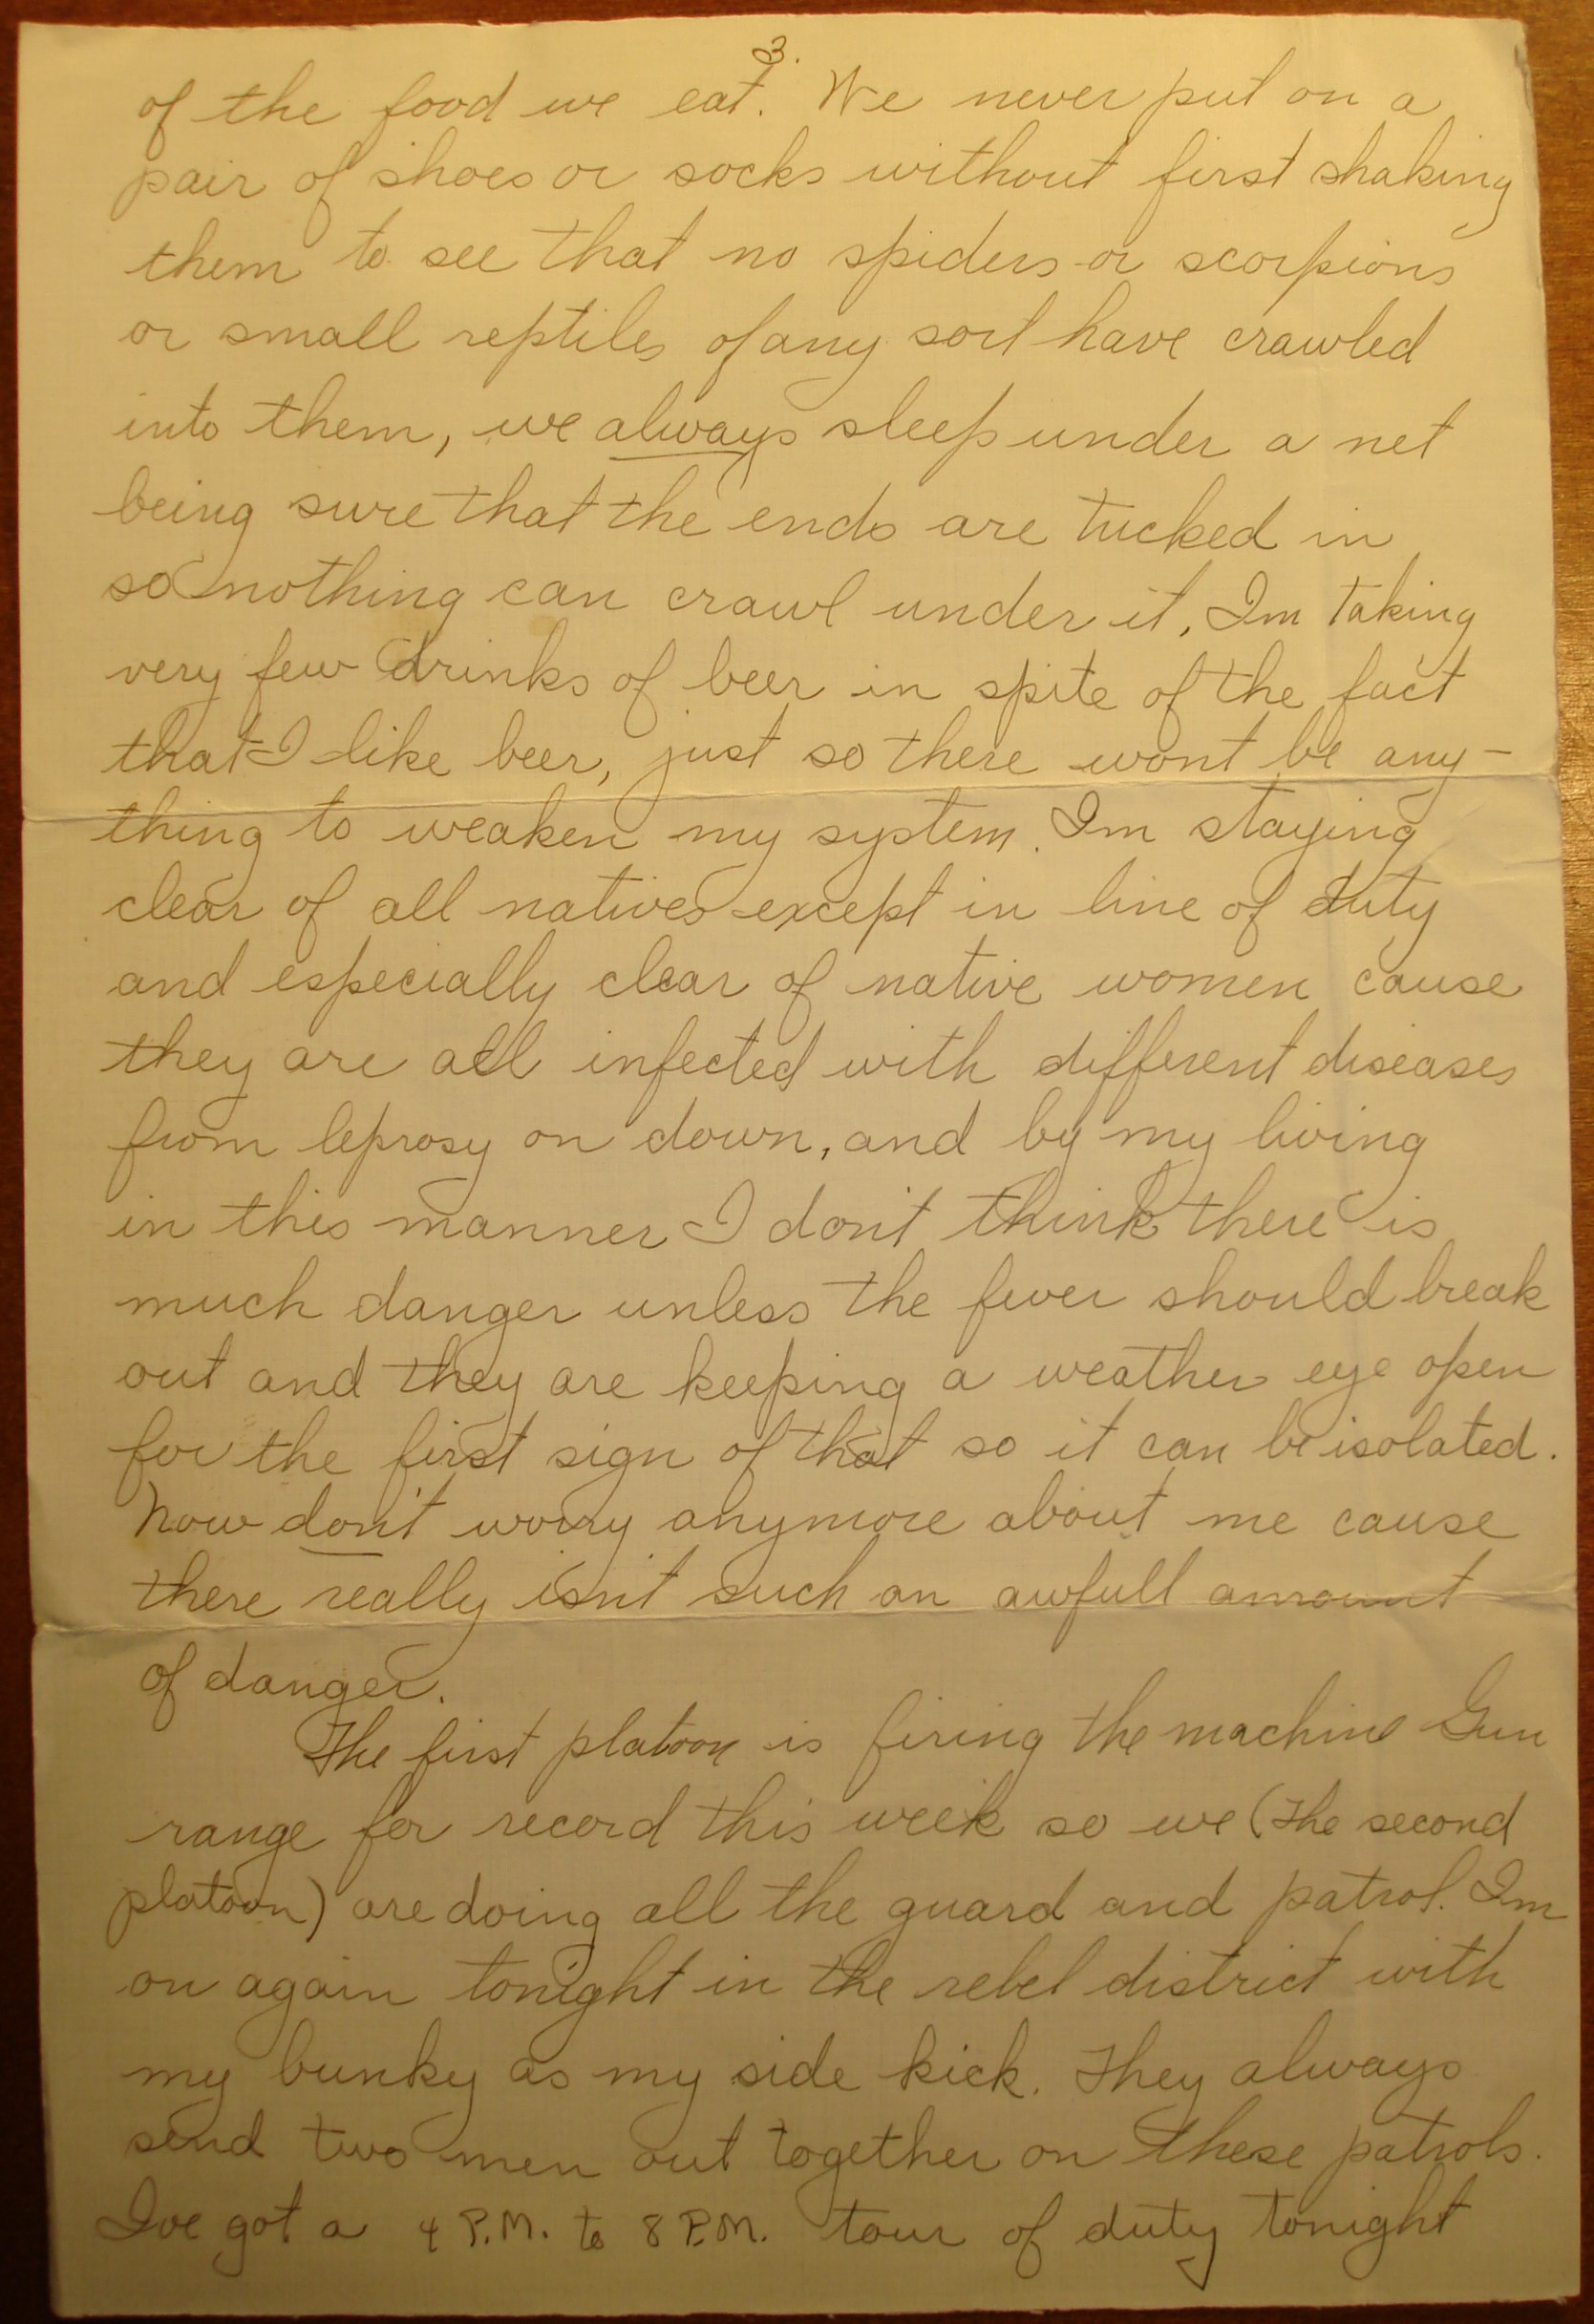 3.
of the food we eat. We never put on a
pair of shoes or socks without first shaking
them to see that no spiders or scorpions
or small reptiles of any sort have crawled
into them, we always sleep under a net
being sure that the ends are tucked in
so nothing can crawl under it, Im taking
very few drinks of beer in spite of the fact
that I like beer, just so there wont be any-
thing to weaken my system. Im staying
clear of all natives except in line of duty
and especially clear of native women cause
they are all infected with different diseases
from leprosy on down, and by my living
in this manner I don't think there is
much danger unless the fever should break
out and they are keeping a weather eye open
for the first sign of that so it can be isolated.
Now don't worry anymore about me cause
there really isn't such an awfull amount
of danger.
The first platoon is firing the machine Gun
range for record this week so we (the second
platoon) are doing all the guard and patrol. Im
on again tonight in the rebel district with
my bunky as my side kick. They always
send two men out together on these patrols.
Ive got a 4 P.M. to 8 P.M. tour of duty tonight